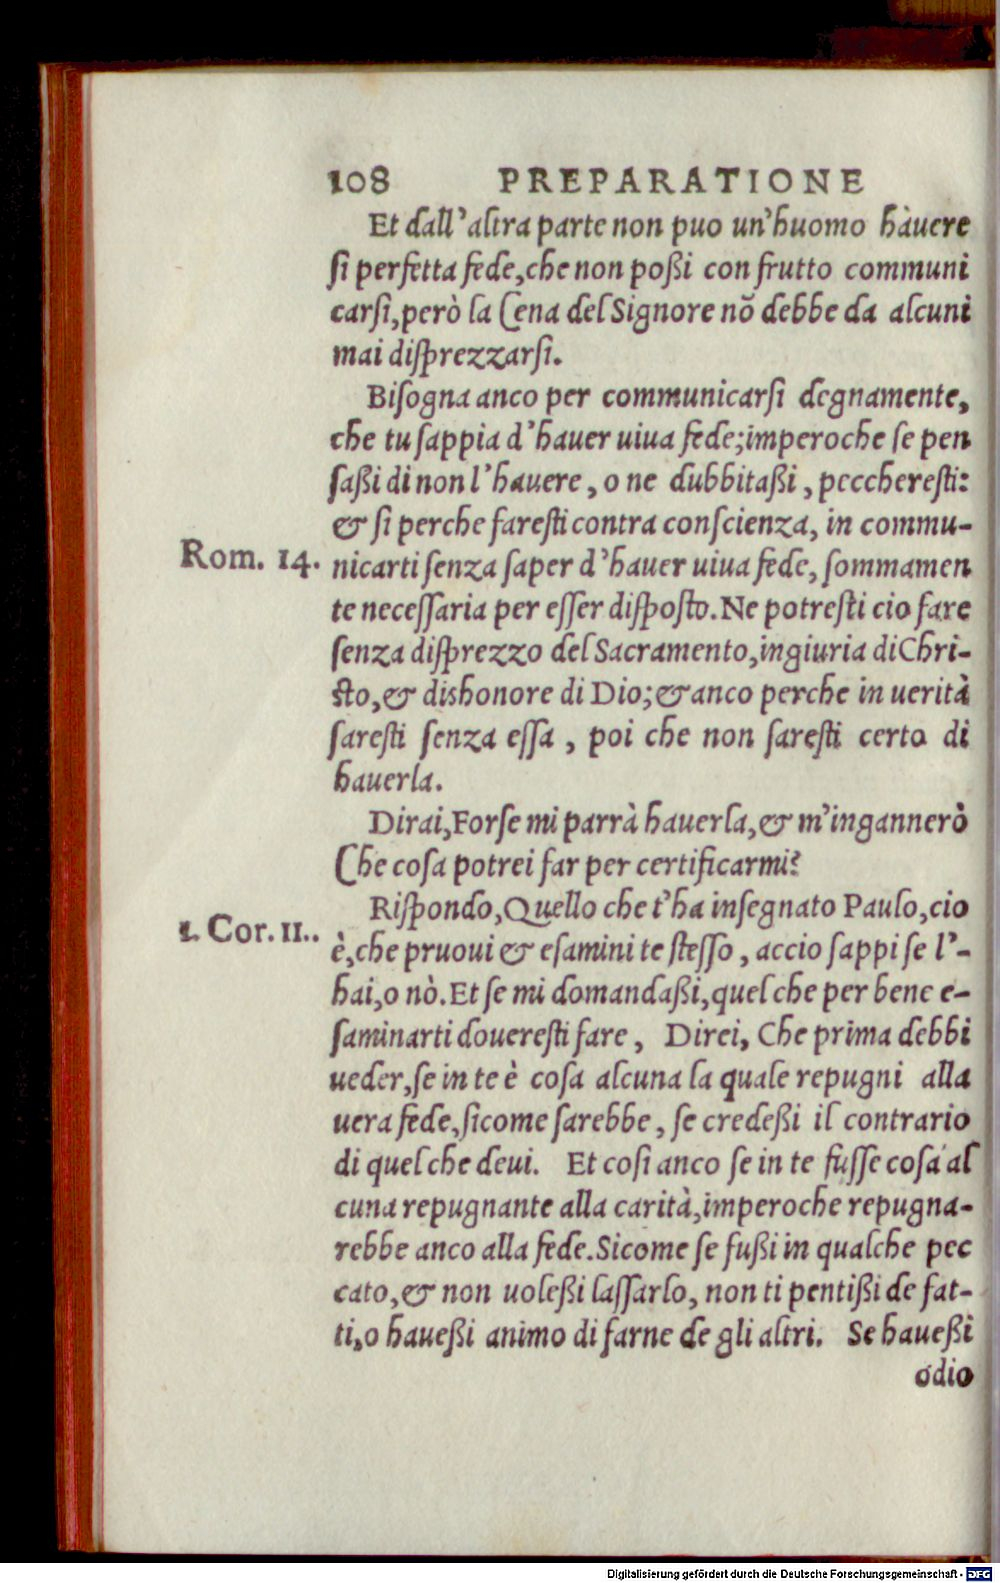 108 PREPARATIONE
Et dall'altra parte non puo un'huomo hàuere
si perfetta fede, che non poßi con frutto communi
carsi, però la Cena del Signore nõ debbe da alcuni
mai disprezzarsi.
Bisogna anco per communicarsi degnamente,
che tu sappia d'hauer uiua fede; imperoche se pen
saßi di non l'hauere, o ne dubbitaßi, peccheresti:
& si perche faresti contra conscienza, in commu-
Rom. 14. nicarti senza saper d'hauer uiua fede, sommamen
te necessaria per esser disposto. Ne potresti cio fare
senza disprezzo del Sacramento, ingiuria di Chri-
sto, & dishonore di Dio; & anco perche in uerità
saresti senza essa, poi che non saresti certo di
hauerla.
Dirai, Forse mi parrà hauerla, & m'ingannerò
Che cosa potrei far per certificarmi?
Rispondo, Quello che t'ha insegnato Paulo, cio
1. Cor. 11.. è, che pruoui & esamini te stesso, accio sappi se l'-
hai, o nò. Et se mi domandaßi, quel che per bene e-
saminarti doueresti fare, Direi, Che prima debbi
ueder, se in te è cosa alcuna la quale repugni alla
uera fede, sicome sarebbe, se credeßi il contrario
di quel che deui. Et cosi anco se in te fusse cosa al
cuna repugnante alla carità, imperoche repugna-
rebbe anco alla fede. Sicome se fußi in qualche pec
cato, & non uoleßi lassarlo, non ti pentißi de fat-
ti, o haueßi animo di farne de gli altri. Se haueßi
odio
Digitalisierung gefördert durch die Deutsche Forschungsgemeinschaft - DFG